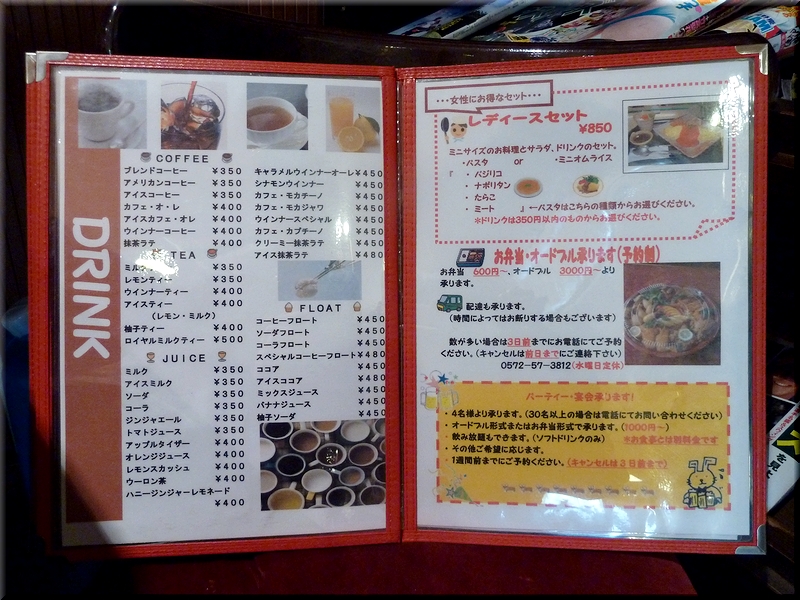 DRINK
COFFEE
ブレンドコーヒー ¥350
アメリカンコーヒー ¥350
アイスコーヒー ¥350
カフェ・オ・レ ¥400
アイスカフェ・オレ ¥400
ウインナーコーヒー ¥400
抹茶ラテ ¥400
TEA
ミルクティー ¥350
レモンティー ¥350
ウインナーティー ¥400
アイスティー ¥400
(レモン・ミルク)
柚子ティー ¥400
ロイヤルミルクティー ¥500
JUICE
ミルク ¥350
アイスミルク ¥350
ソーダ ¥350
コーラ ¥350
ジンジャエール ¥350
トマトジュース ¥350
アップルタイザー ¥400
オレンジジュース ¥400
レモンスカッシュ ¥400
ウーロン茶 ¥400
ハニージンジャーレモネード
¥400
キャラメルウインナーオーレ ¥450
シナモンウインナー ¥450
カフェ・モカチーノ ¥450
カフェ・モカジャワ ¥450
ウインナースペシャル ¥450
カフェ・カプチーノ ¥450
クリーミー抹茶ラテ ¥450
アイス抹茶ラテ ¥480
FLOAT
コーヒーフロート ¥450
ソーダフロート ¥450
コーラフロート ¥450
スペシャルコーヒーフロート ¥480
ココア ¥450
アイスココア ¥480
ミックスジュース ¥450
バナナジュース ¥450
柚子ソーダ ¥450
・・・女性にお得なセット・・・
レディースセット
¥850
ミニサイズのお料理とサラダ、ドリンクのセット。
・パスタ or ・ミニオムライス
『 ・ バジリコ
・ ナポリタン
・ たらこ
・ ミート 』 ←パスタはこちらの種類からお選びください。
*ドリンクは350円以内のものからお選びください。
お弁当・オードブル承ります(予約制)
お弁当 600円~、オードブル 3000円~より
承ります。
配達も承ります。
(時間によってはお断りする場合もございます)
数が多い場合は3日前までにお電話にてご予約
ください。(キャンセルは前日までにご連絡下さい)
0572-57-3812(水曜日定休)
パーティー・宴会承ります!
・4名様より承ります。(30名以上の場合は電話にてお問い合わせください)
・オードブル形式またはお弁当形式で承ります。(1000円~)
・飲み放題もできます。(ソフトドリンクのみ) ※お食事とは別料金です
・その他ご希望に応じます。
・1週間前までにご予約ください。(キャンセルは3日前まで)